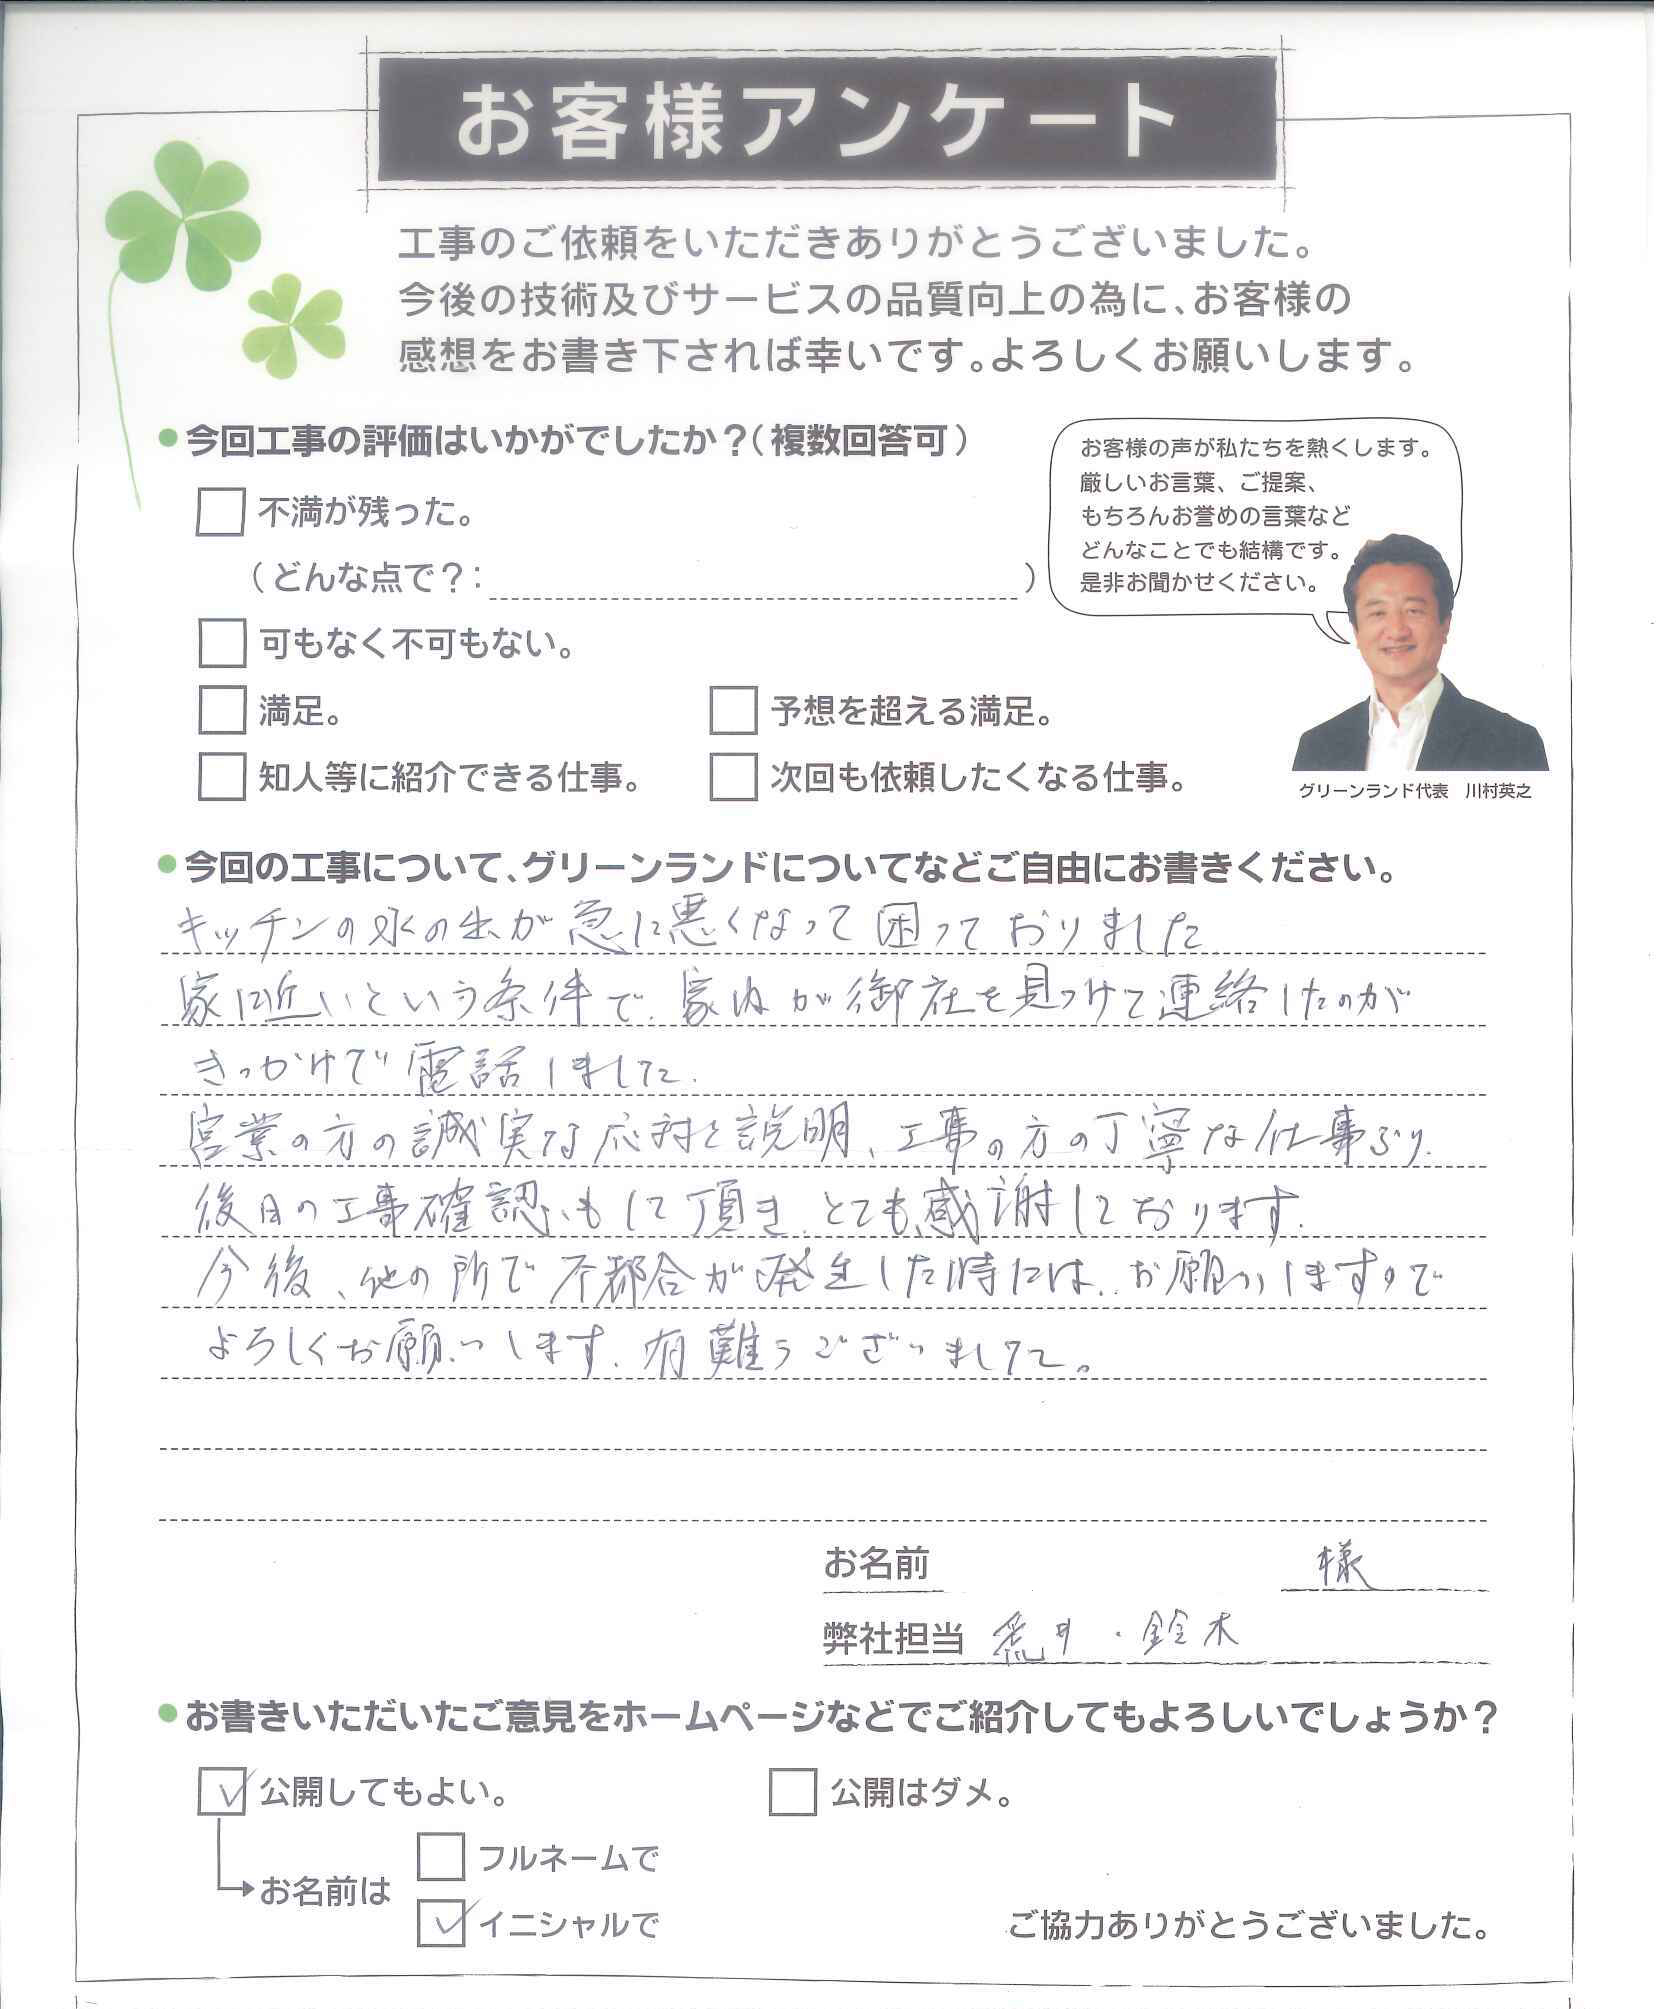 お客様アンケート
工事のご依頼をいただきありがとうございました。
今後の技術及びサービスの品質向上の為に、お客様の
感想をお書き下されば幸いです。よろしくお願いします。
今回工事の評価はいかがでしたか？（複数回答可）
不満が残った。
（どんな点で？：　）
可もなく不可もない。
満足。
予想を超える満足。
知人等に紹介できる仕事。
次回も依頼したくなる仕事。
お客様の声が私たちを熱くします。
厳しいお言葉、ご提案、
もちろんお誉めの言葉など
どんなことでも結構です。
是非お聞かせください。
グリーンランド代表　川村英之
今回の工事について、グリーンランドについてなどご自由にお書きください。
キッチンの水の出が急に悪くなって困っておりました
家に近いという条件で、家内が御社を見つけて連絡したのが
きっかけで電話しました.
営業の方の誠実な応対と説明、工事の方の丁寧な仕事ぶり.
後日の工事確認もして頂き、とても感謝しております.
今後、他の所で不都合が発生した時には、お願いしますので
よろしくお願いします. 有難うございました。
お名前　様
弊社担当　荒井・鈴木
お書きいただいたご意見をホームページなどでご紹介してもよろしいでしょうか？
公開してもよい。
公開はダメ。
お名前は
フルネームで
イニシャルで
ご協力ありがとうございました。